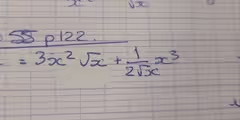 55 p122.
= 3x² √x + 1/(2√x) x³